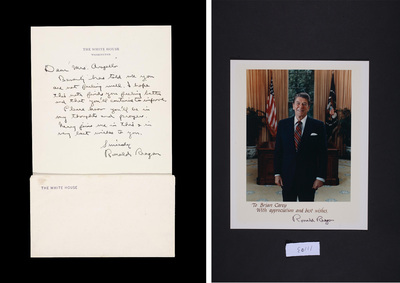 THE WHITE HOUSE
WASHINGTON
Dear Mrs. Angelo
Beverly has told me you
are not feeling well. I hope
this note finds you feeling better
and that you'll continue to improve.
Please know you'll be in
my thoughts and prayers.
Nancy joins me in this & in
very best wishes to you.
Sincerely
Ronald Reagan
THE WHITE HOUSE
To Brian Carey
With appreciation and best wishes
Ronald Reagan